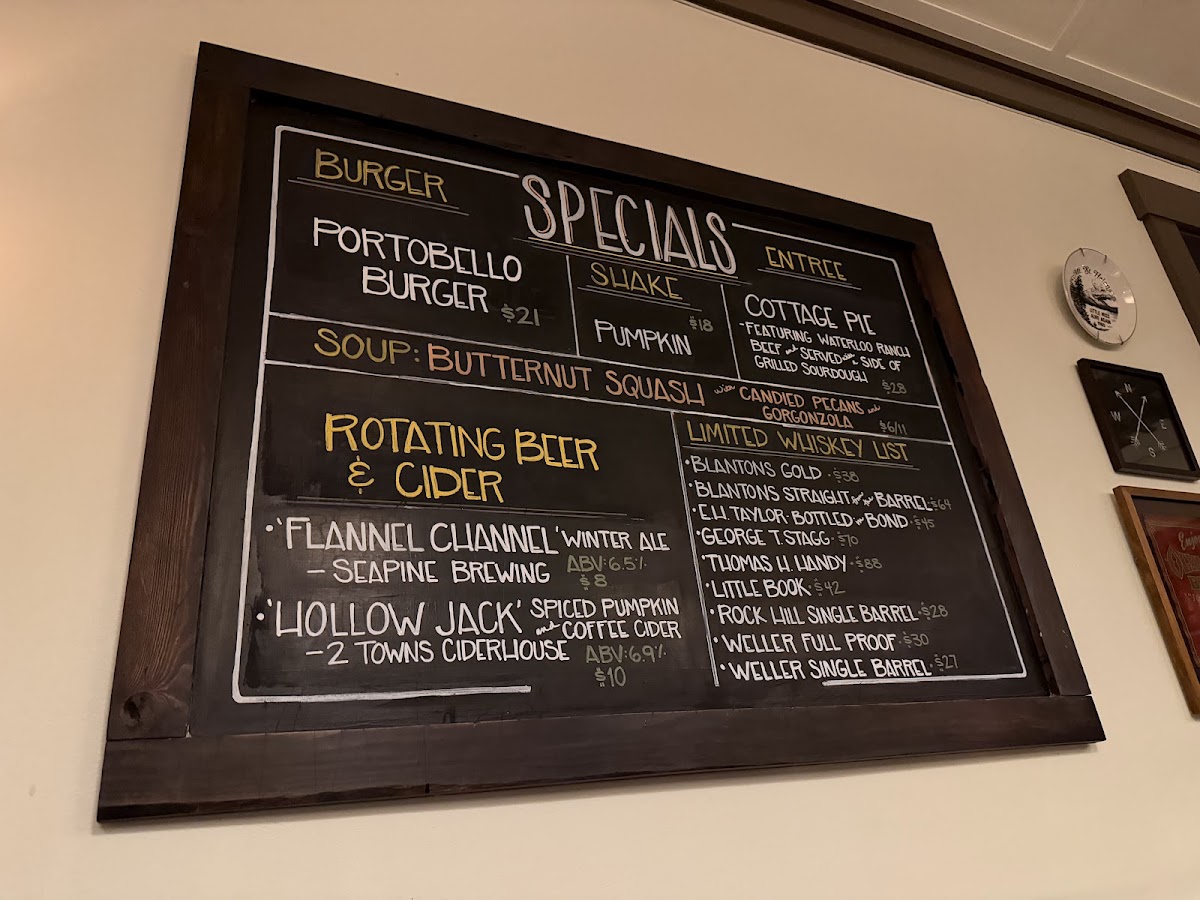 SPECIALS
BURGER
PORTOBELLO
BURGER $21
SHAKE
$18
PUMPKIN
ENTREE
COTTAGE PIE
•FEATURING WATERLOO RANCH
BEEF and SERVED with a SIDE OF
GRILLED SOURDOUGH $28
SOUP: BUTTERNUT SQUASH with CANDIED PECANS and
GORGONZOLA $6/11
ROTATING BEER
& CIDER
•'FLANNEL CHANNEL' WINTER ALE
– SEAPINE BREWING ABV: 6.5%
$8
•'HOLLOW JACK' SPICED PUMPKIN
and COFFEE CIDER
– 2 TOWNS CIDERHOUSE ABV: 6.9%
$10
LIMITED WHISKEY LIST
•BLANTONS GOLD • $38
•BLANTONS STRAIGHT from the BARREL • $64
•E.H. TAYLOR • BOTTLED in BOND • $45
•GEORGE T. STAGG • $70
•THOMAS H. HANDY • $88
•LITTLE BOOK • $42
•ROCK HILL SINGLE BARREL • $28
•WELLER FULL PROOF • $30
•WELLER SINGLE BARREL • $27
N
W
E
S
Enjoy